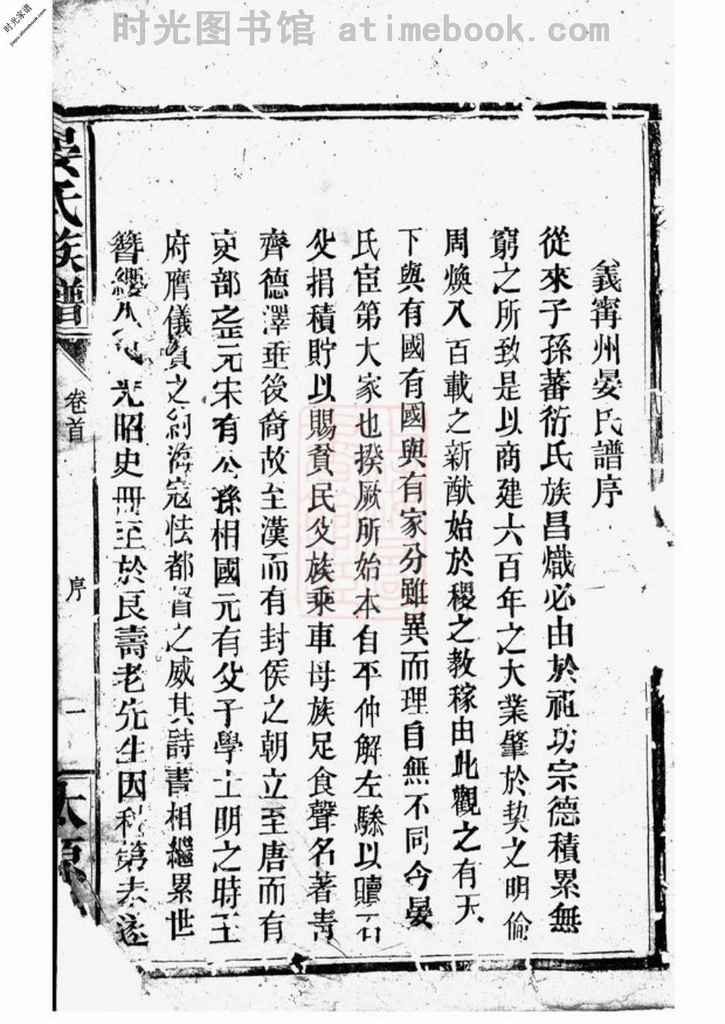 时光图书馆 atimebook.com
时光家谱
義寗州晏氏譜序
從來子孫蕃衍氏族昌熾必由於祖功宗德積累無
窮之所致是以商建六百年之大業肇於契之明倫
周煥八百載之新猷始於稷之教稼由此觀之有天
下與有國有國與有家分雖異而理自無不同今晏
氏宦第大家也揆厥所始本自平仲解左驂以贖石
父捐積貯以賜貧民父族乘車母族足食聲名著青
齊德澤垂後裔故至漢而有封侯之朝立至唐而有
吏部之 元宋有公孫相國元有父子學士明之時王
府膺儀賓之 海寇怯都督之威其詩書相繼累世
簪纓 光昭史冊至於良壽老先生因科第未遂
晏氏族譜
卷首
序
一
太原